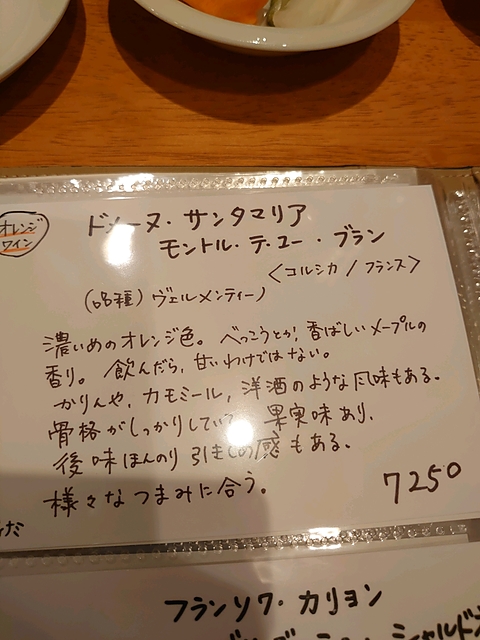 オレンジ
ワイン
ドメーヌ・サンタマリア
モントル・テ・ユー・ブラン
〈コルシカ / フランス〉
(品種) ヴェルメンティーノ
濃いめのオレンジ色。べっこうとか、香ばしいメープルの
香り。飲んだら、甘いわけではない。
かりんや、カモミール、洋酒のような風味もある。
骨格がしっかりしていて 果実味あり、
後味ほんのり引きしめ感もある。
様々なつまみに合う。
7250
フランソワ・カリヨン